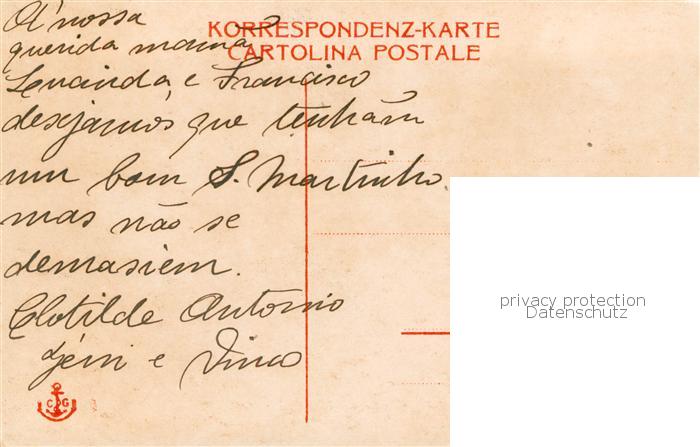 KORRESPONDENZ-KARTE
CARTOLINA POSTALE
A' nossa
querida mamã
Lucinda, e Francisco
desejamos que tenham
um bom S. Martinho,
mas não se
demasiem.
Clotilde Antonio
e
C G
privacy protection
Datenschutz